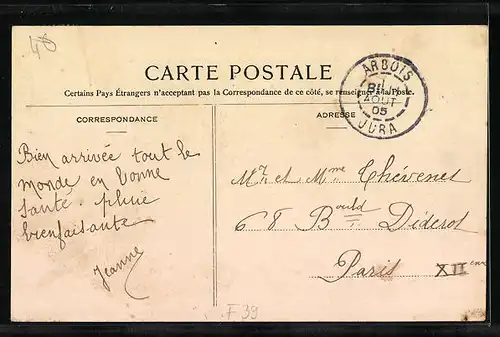 40
CARTE POSTALE
Certains Pays Étrangers n'acceptant pas la Correspondance de ce côté, se renseigner à la Poste.
ARBOIS
AOUT
05
JURA
CORRESPONDANCE
ADRESSE
Bien arrivée tout le
monde en bonne
santé. pluie
bienfaisante
Jeanne
Mr et Mme Chévenet
68 Bould Diderot
Paris XIIeme
F 39